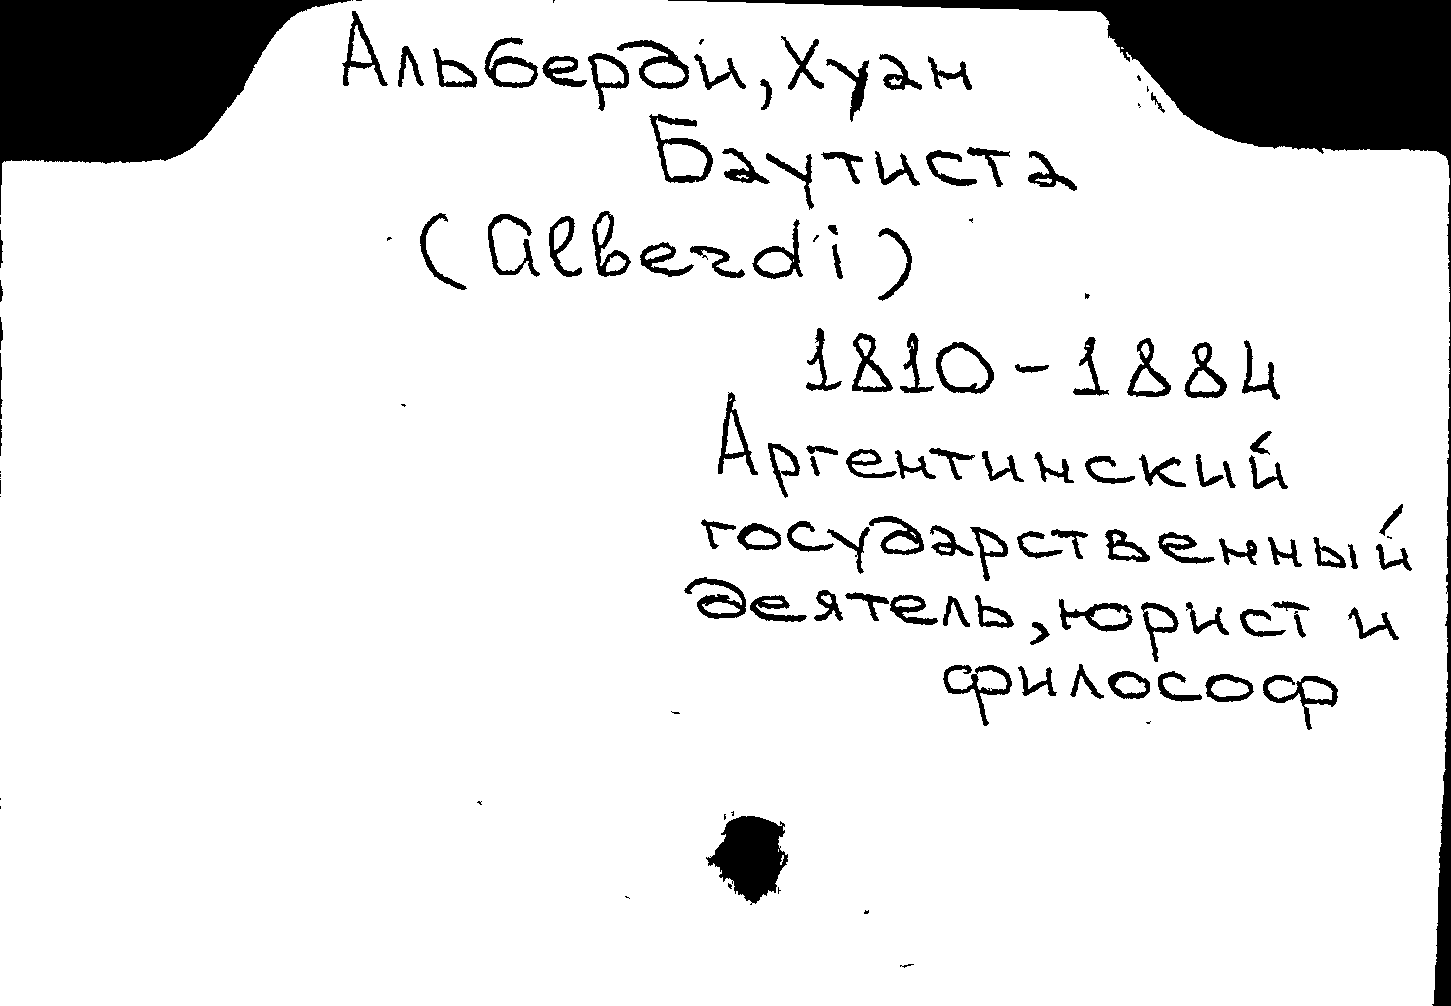 Альберди, Хуан
Баутиста
(Alberdi)
1810-1884
Аргентинский
государственный
деятель, юрист и
философ